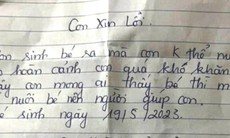 Con Xin Lỗi
sinh bé sa mà con k thể nu
hoàn cảnh con quá khổ khăn
con mong ai thấy bé thì m
nuôi bé nên người giúp con.
sinh ngày 19/5/2023.